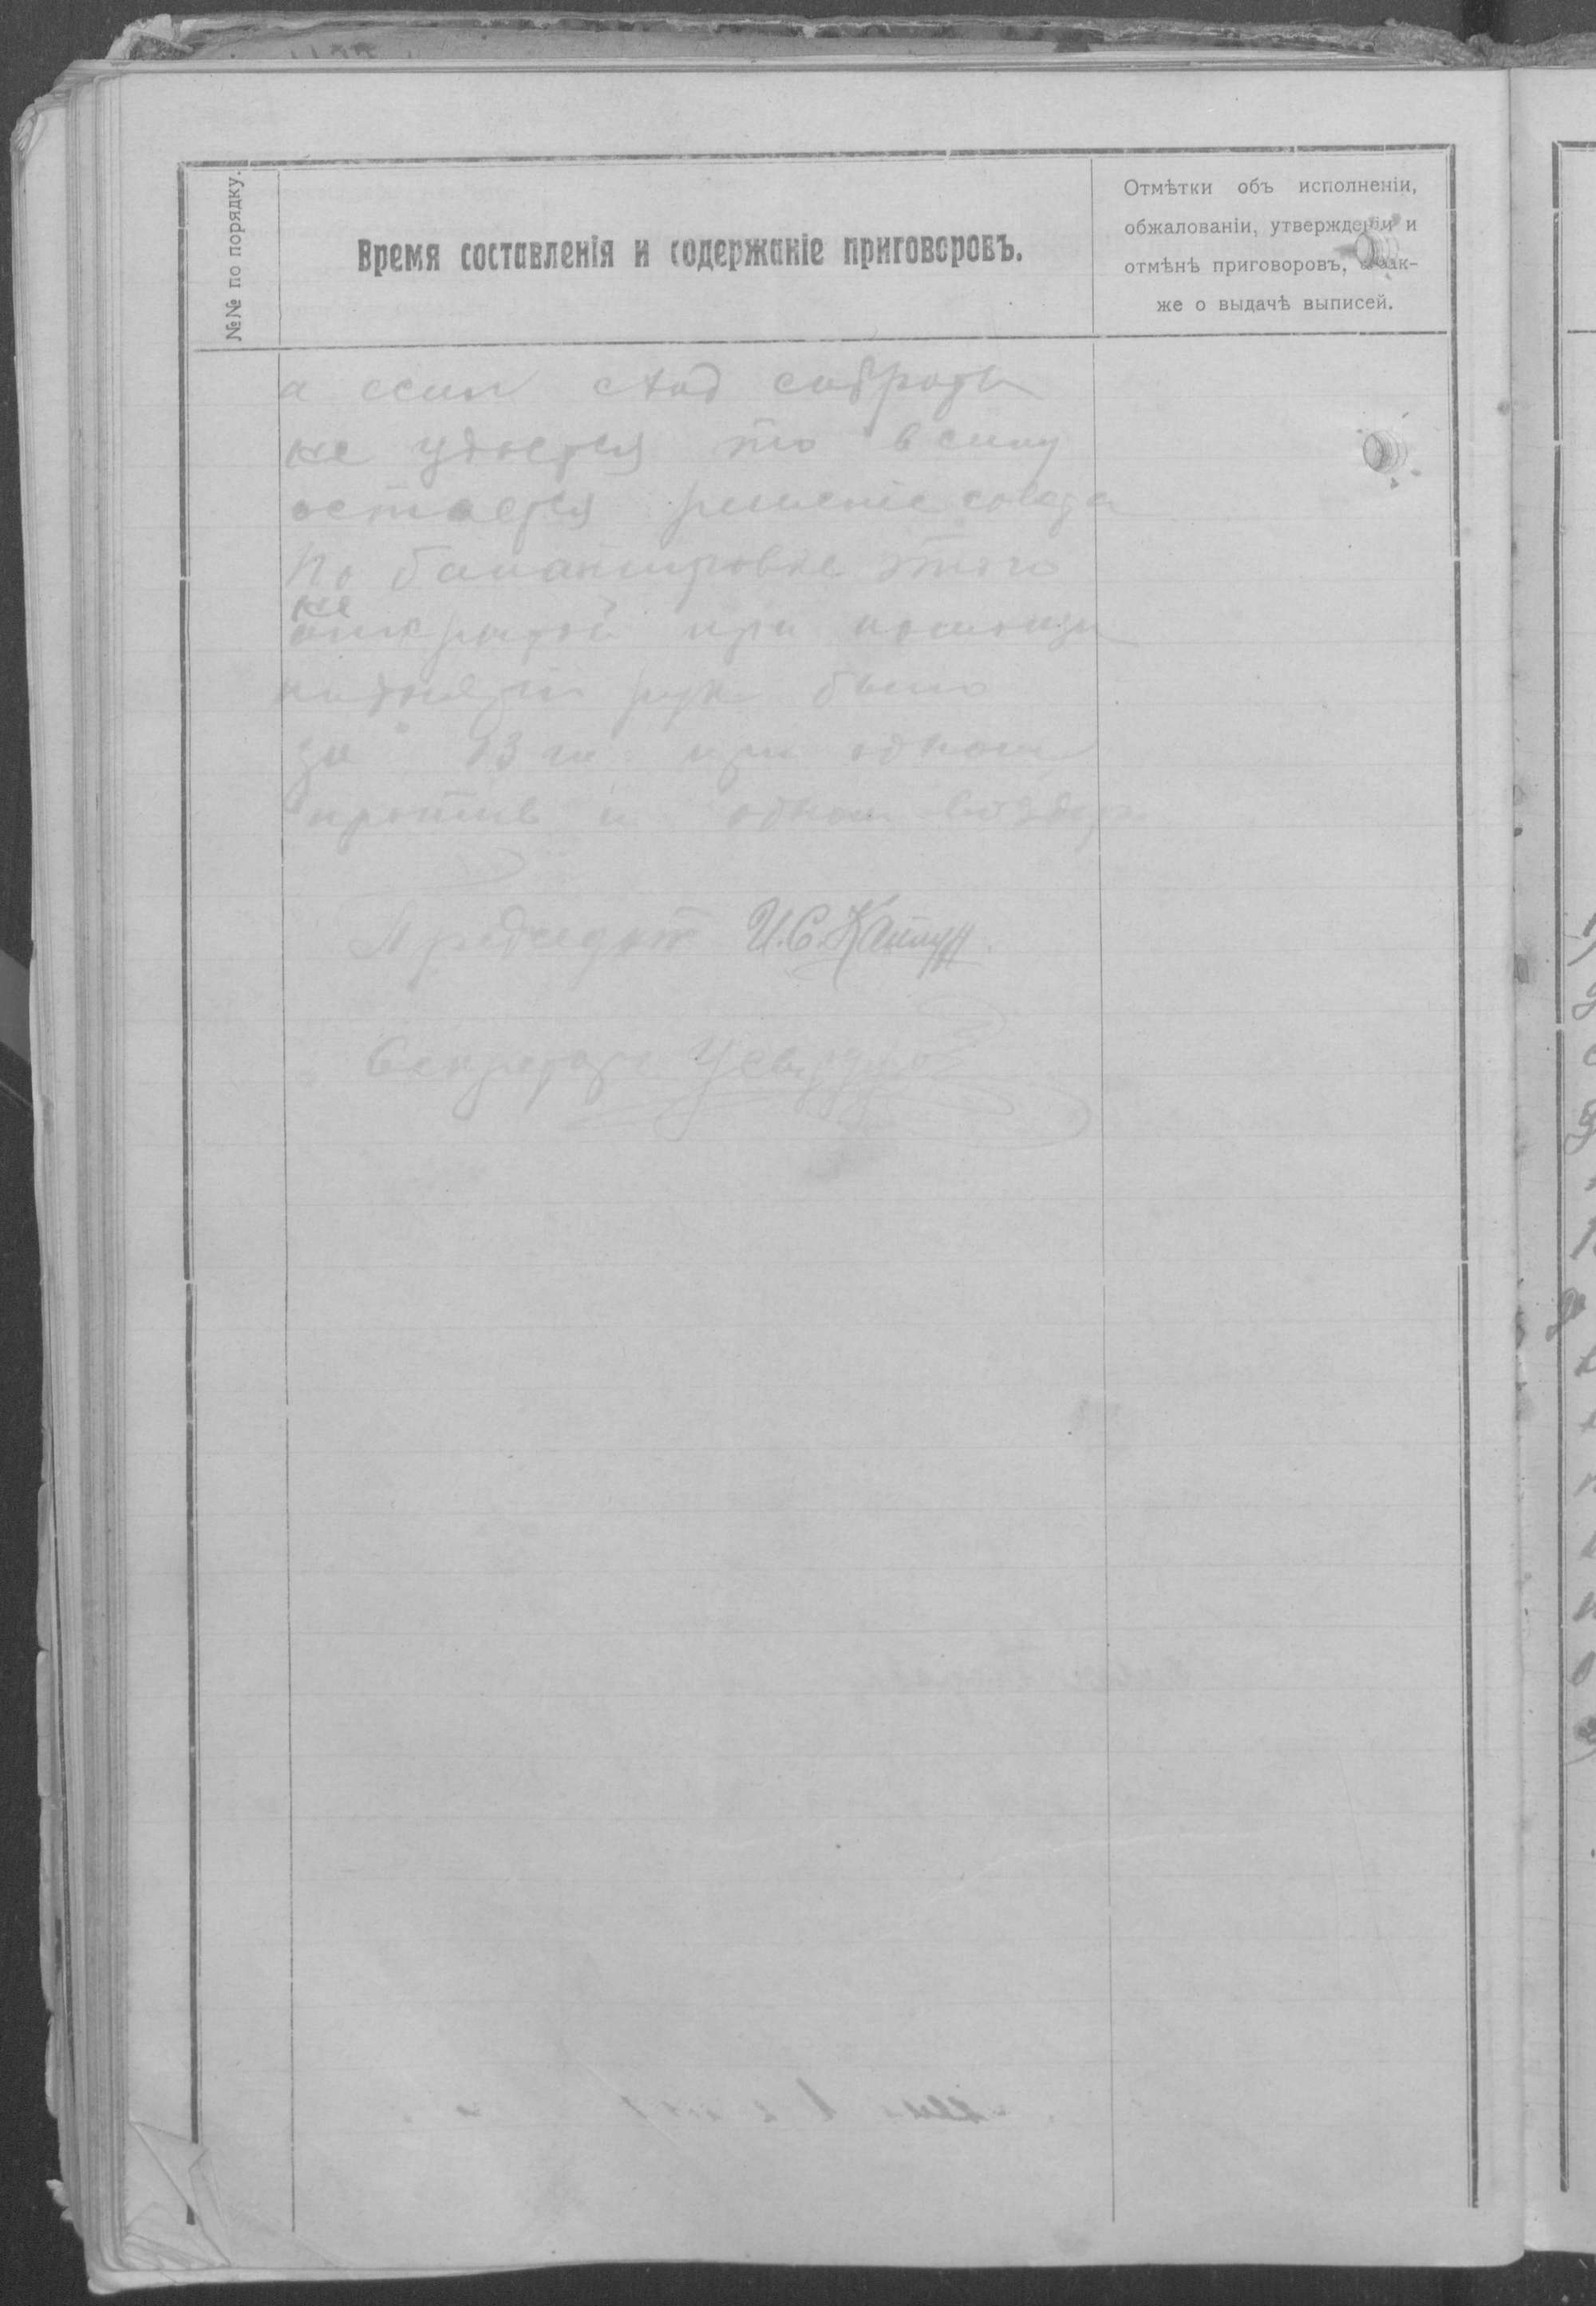 №№ по порядку.
Время составленія и содержаніе приговоровъ.
Отмѣтки объ исполненіи,
обжалованіи, утвержденіи и
отмѣнѣ приговоровъ, а так-
же о выдачѣ выписей.
а если сход собрать
не удастся то в силу
остается решение совета
По баллотировке этого
не открытой при помощи
поднятия руки было
за 13 ч. при одном
против и одном воздер
Председат И.С.
Секретарь